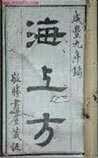 咸豐九年鐫
海上方
敬勝書室藏板